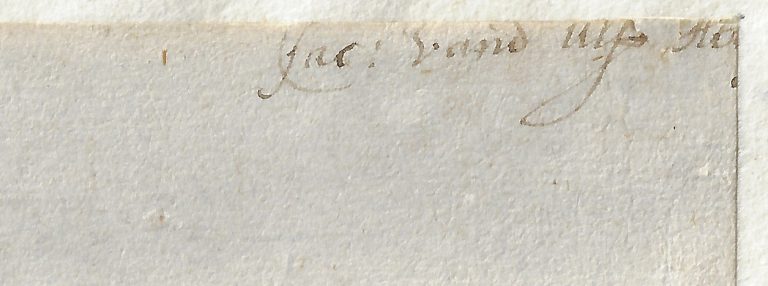 Jac: vand Ulft